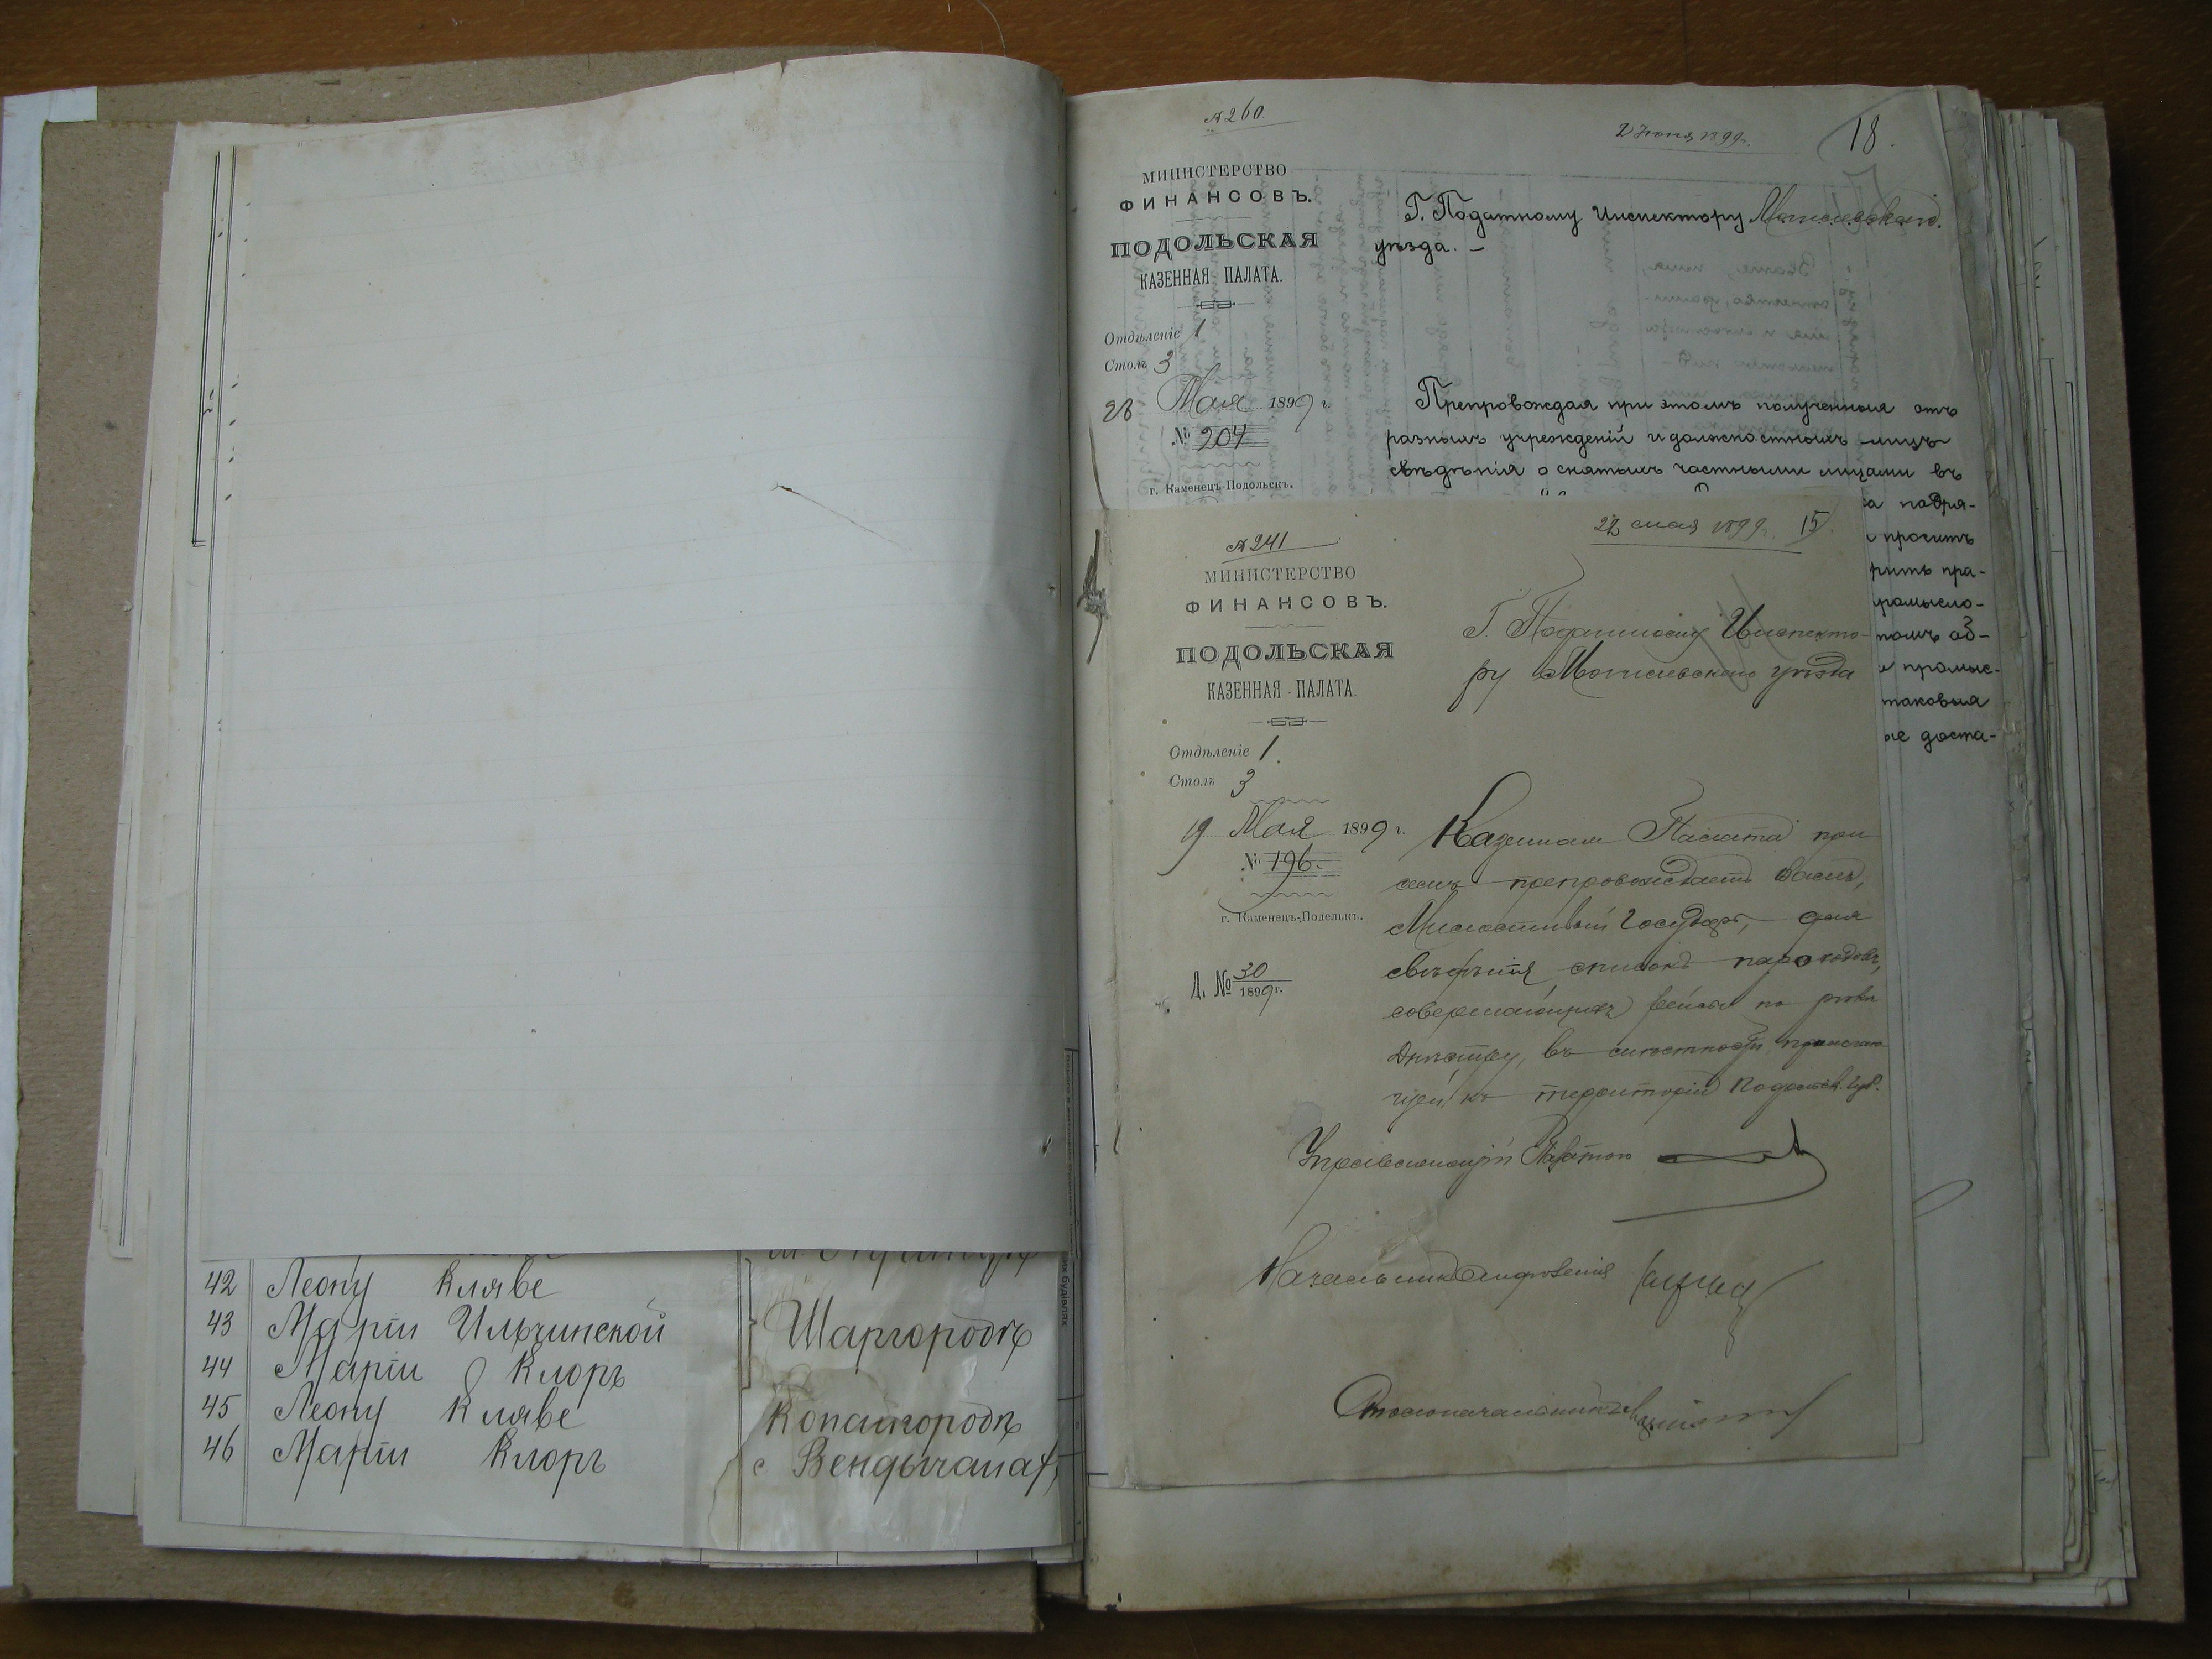 42 Леону Кляве
43 Маріи Ильчинской
44 Маріи Клоръ
45 Леону Кляве
46 Маріи Клоръ
Шаргородѣ
Копайгородѣ
с Вендычанах
№ 260.
2 Іюня 1899 г.
18.
МИНИСТЕРСТВО
ФИНАНСОВЪ.
ПОДОЛЬСКАЯ
КАЗЕННАЯ ПАЛАТА.
Отдѣленіе 1
Столъ 3
28 Мая 1899 г.
№ 204
г. Каменецъ-Подольскъ.
Г. Податному Инспектору Могилевскаго
уѣзда. —
Препровождая при этомъ полученныя отъ
разныхъ учрежденій и должностныхъ лицъ
свѣдѣнія о снятыхъ частными лицами въ
а подря-
и проситъ
рить пра-
промысло-
томъ об-
и промыс-
таковыя
ые доста-
№ 241
22 мая 1899 г. 15
МИНИСТЕРСТВО
ФИНАНСОВЪ.
ПОДОЛЬСКАЯ
КАЗЕННАЯ ПАЛАТА.
Отдѣленіе 1.
Столъ 3
19 Мая 1899 г.
№ 196.
г. Каменецъ-Подолькъ.
Д. № 30
1899 г.
Г. Податному Инспекто-
ру Могилевскаго уѣзда
Казенная Палата при
семъ препровождаетъ Вамъ,
Милостивый Государь, для
свѣдѣнія списокъ пароходовъ,
совершающихъ рейсы по рѣкѣ
Днѣстру, въ мѣстности, прилегаю-
щей къ территоріи Подольск. губ.
Управляющій Палатою
Начальникъ Отдѣленія
Столоначальникъ